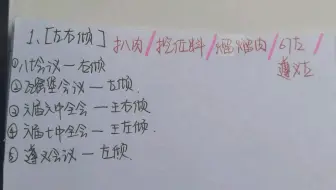 1、[左右倾] 扒肉/挖佐料/烟熘肉/67左/
遵义左
①八七会议—左倾
②瓦窑堡会议—左倾.
③六届六中全会—王右倾
④六届七中全会—王左倾.
⑤遵义会议—左倾.